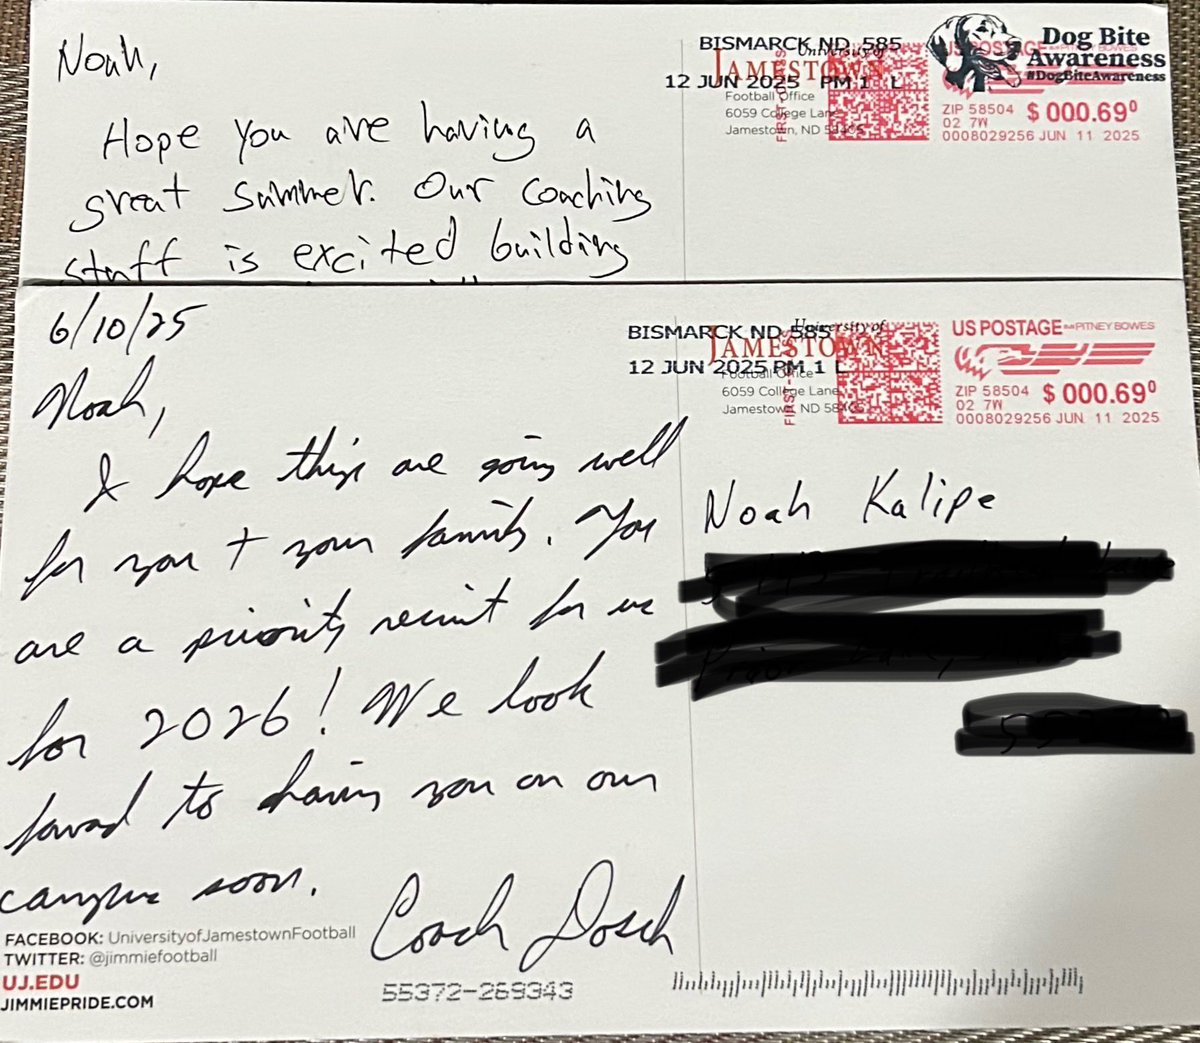 Noah,
Hope you are having a
great summer. Our coaching
staff is excited building
BISMARCK ND 585
12 JUN 2025 PM 1 L
University of
JAMESTOWN
Football Office
6059 College Lane
Jamestown, ND
FIRST-CLASS
US POSTAGE PITNEY BOWES
Dog Bite
Awareness
#DogBiteAwareness
ZIP 58504
02 7W
$ 000.69⁰
0008029256 JUN 11 2025
6/10/25
Noah,
I hope things are going well
for you + your family. You
are a priority recruit for us
for 2026! We look
forward to having you on our
campus soon.
Coach Dosch
FACEBOOK: UniversityofJamestownFootball
TWITTER: @jimmiefootball
UJ.EDU
JIMMIEPRIDE.COM
BISMARCK ND 585
12 JUN 2025 PM 1 L
University of
JAMESTOWN
Football Office
6059 College Lane
Jamestown, ND
US POSTAGE PITNEY BOWES
ZIP 58504
02 7W
$ 000.69⁰
0008029256 JUN 11 2025
Noah Kalipe
55372-269343